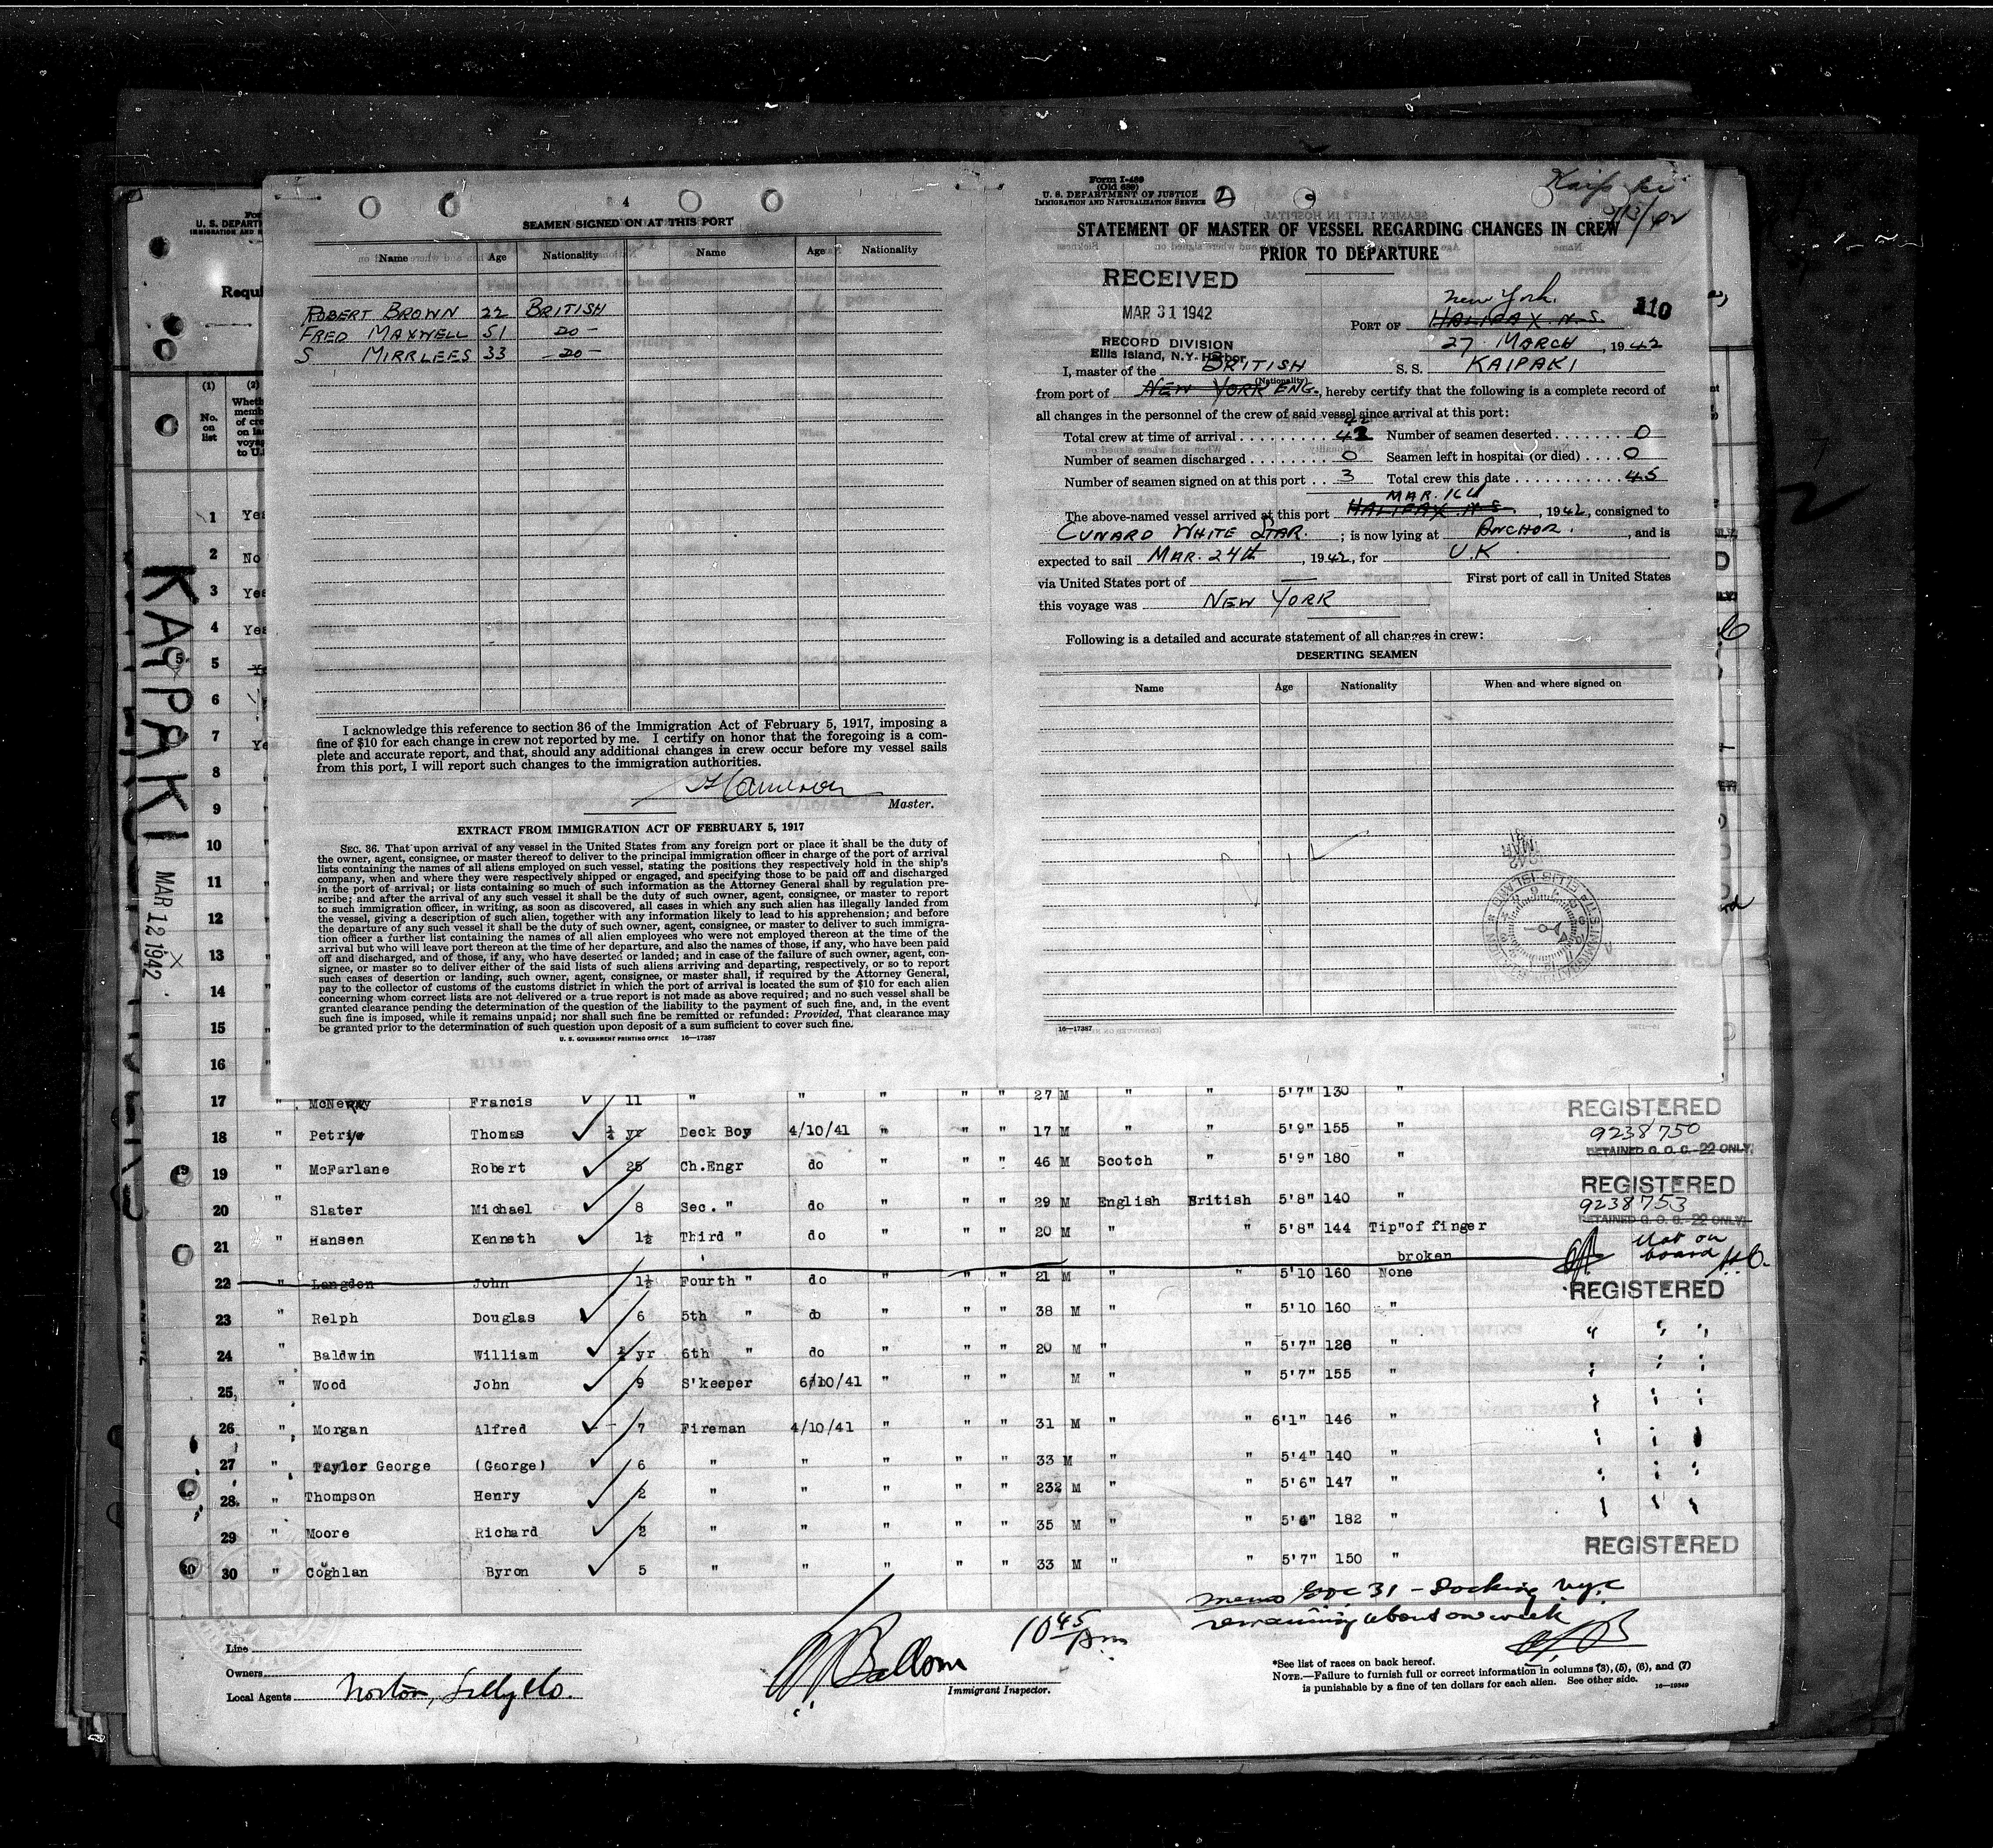 4
SEAMEN SIGNED ON AT THIS PORT
Name Age Nationality Name Age Nationality
ROBERT BROWN 22 BRITISH
FRED MAXWELL 51 -DO-
S MIRRLEES 33 -DO-
I acknowledge this reference to section 36 of the Immigration Act of February 5, 1917, imposing a
fine of $10 for each change in crew not reported by me. I certify on honor that the foregoing is a com-
plete and accurate report, and that, should any additional changes in crew occur before my vessel sails
from this port, I will report such changes to the immigration authorities.
Master.
EXTRACT FROM IMMIGRATION ACT OF FEBRUARY 5, 1917
SEC. 36. That upon arrival of any vessel in the United States from any foreign port or place it shall be the duty of
the owner, agent, consignee, or master thereof to deliver to the principal immigration officer in charge of the port of arrival
lists containing the names of all aliens employed on such vessel, stating the positions they respectively hold in the ship's
company, when and where they were respectively shipped or engaged, and specifying those to be paid off and discharged
in the port of arrival; or lists containing so much of such information as the Attorney General shall by regulation pre-
scribe; and after the arrival of any such vessel it shall be the duty of such owner, agent, consignee, or master to report
to such immigration officer, in writing, as soon as discovered, all cases in which any such alien has illegally landed from
the vessel, giving a description of such alien, together with any information likely to lead to his apprehension; and before
the departure of any such vessel it shall be the duty of such owner, agent, consignee, or master to deliver to such immigra-
tion officer a further list containing the names of all alien employees who were not employed thereon at the time of the
arrival but who will leave port thereon at the time of her departure, and also the names of those, if any, who have been paid
off and discharged, and of those, if any, who have deserted or landed; and in case of the failure of such owner, agent, con-
signee, or master so to deliver either of the said lists of such aliens arriving and departing, respectively, or so to report
such cases of desertion or landing, such owner, agent, consignee, or master shall, if required by the Attorney General,
pay to the collector of customs of the customs district in which the port of arrival is located the sum of $10 for each alien
concerning whom correct lists are not delivered or a true report is not made as above required; and no such vessel shall be
granted clearance pending the determination of the question of the liability to the payment of such fine, and, in the event
such fine is imposed, while it remains unpaid; nor shall such fine be remitted or refunded: Provided, That clearance may
be granted prior to the determination of such question upon deposit of a sum sufficient to cover such fine.
U. S. GOVERNMENT PRINTING OFFICE 16—17387
Form I-489
(Old 689)
U. S. DEPARTMENT OF JUSTICE
IMMIGRATION AND NATURALIZATION SERVICE
2
Kaipaki
3/13/42
STATEMENT OF MASTER OF VESSEL REGARDING CHANGES IN CREW
PRIOR TO DEPARTURE
RECEIVED
MAR 31 1942
RECORD DIVISION
Ellis Island, N.Y. Harbor
New York.
110
PORT OF HALIFAX. N. S.
27 MARCH, 1942
I, master of the BRITISH S. S. KAIPAKI
(Nationality)
from port of NEW YORK ENG., hereby certify that the following is a complete record of
all changes in the personnel of the crew of said vessel since arrival at this port:
42
Total crew at time of arrival 42 Number of seamen deserted 0
Number of seamen discharged 0 Seamen left in hospital (or died) 0
Number of seamen signed on at this port 3 Total crew this date 45
MAR. 16th
The above-named vessel arrived at this port HALIFAX N.S., 1942, consigned to
CUNARD WHITE STAR.; is now lying at ANCHOR., and is
expected to sail MAR. 24th, 1942, for U.K.
via United States port of — First port of call in United States
this voyage was NEW YORK
Following is a detailed and accurate statement of all changes in crew:
DESERTING SEAMEN
Name Age Nationality When and where signed on
16—17387
U. S. DEPART
Requi
(1) (2)
No. on list
KAIPAKI
MAR 12 1942
1 Yes
2 No
3 Yes
4 Yes
5
6
7 Yes
8
9
10
11
12
13
14
15
16
17 " McNerny Francis 11 " " " " " 27 M " " 5'7" 130 "
18 " Petrie Thomas ¼ yr Deck Boy 4/10/41 " " " 17 M " " 5'9" 155 "
19 " McFarlane Robert 25 Ch.Engr do " " " 46 M Scotch " 5'9" 180 "
20 " Slater Michael 8 Sec. " do " " " 29 M English British 5'8" 140 "
21 " Hansen Kenneth 1½ Third " do " " " 20 M " " 5'8" 144 Tip"of finger
broken
22 " Langdon John 1½ Fourth " do " " " 21 M " " 5'10 160 None
23 " Relph Douglas 6 5th " do " " " 38 M " " 5'10 160 "
24 " Baldwin William ½ yr 6th " do " " " 20 M " " 5'7" 128 "
25 " Wood John 9 S'keeper 6/10/41 " " " M " " 5'7" 155 "
26 " Morgan Alfred 7 Fireman 4/10/41 " " " 31 M " " 6'1" 146 "
27 " Taylor George (George) 6 " " " " " 33 M " 5'4" 140 "
28 " Thompson Henry 2 " " " " " 232 M " " 5'6" 147 "
29 " Moore Richard 2 " " " " " 35 M " " 5'4" 182 "
30 " Coghlan Byron 5 " " " " " 33 M " " 5'7" 150 "
REGISTERED
9238750
DETAINED G. O. C.-22 ONLY.
REGISTERED
9238753
DETAINED G. O. C.-22 ONLY.
Not on
board
REGISTERED
REGISTERED
memo GOC 31 - Docking nyc
remaining about one week
10 45 /am
Line
Owners
Local Agents Norton, Lilly &Co.
Immigrant Inspector.
*See list of races on back hereof.
NOTE.—Failure to furnish full or correct information in columns (3), (5), (6), and (7)
is punishable by a fine of ten dollars for each alien. See other side. 16—19349